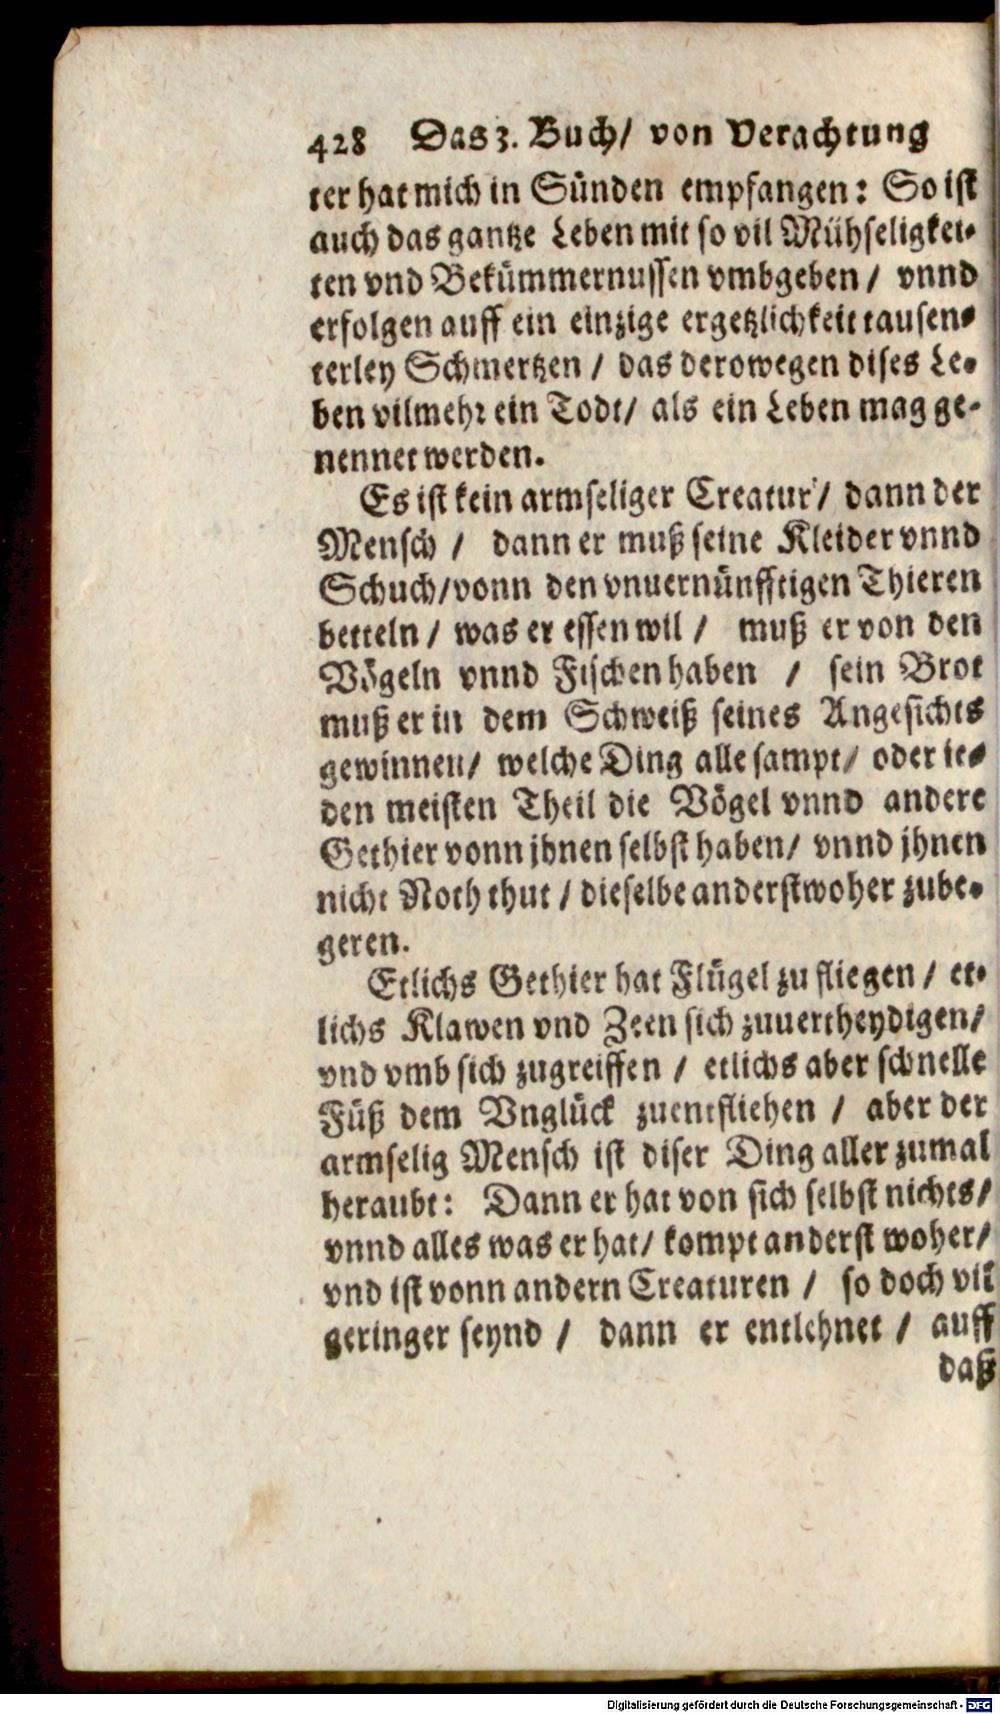 428 Das 3. Buch/ von Verachtung
ter hat mich in Sünden empfangen: So ist
auch das gantze Leben mit so vil Mühseligkei-
ten vnd Bekümmernussen vmbgeben / vnnd
erfolgen auff ein einzige ergetzlichkeit tausen-
terley Schmertzen / das derowegen dises Le-
ben vilmehr ein Todt/ als ein Leben mag ge-
nennet werden.
Es ist kein armseliger Creatur/ dann der
Mensch / dann er muß seine Kleider vnnd
Schuch/vonn den vnuernünfftigen Thieren
betteln / was er essen wil / muß er von den
Vögeln vnnd Fischen haben / sein Brot
muß er in dem Schweiß seines Angesichts
gewinnen/ welche Ding alle sampt/ oder je-
den meisten Theil die Vögel vnnd andere
Gethier vonn jhnen selbst haben/ vnnd jhnen
nicht Noth thut / dieselbe anderstwoher zube-
geren.
Etlichs Gethier hat Flügel zu fliegen / et-
lichs Klawen vnd Zeen sich zuuertheydigen/
vnd vmb sich zugreiffen / etlichs aber schnelle
Füß dem Vnglück zuentfliehen / aber der
armselig Mensch ist diser Ding aller zumal
beraubt: Dann er hat von sich selbst nichts/
vnnd alles was er hat/ kompt anderst woher/
vnd ist vonn andern Creaturen / so doch vil
geringer seynd / dann er entlehnet / auff
daß
Digitalisierung gefördert durch die Deutsche Forschungsgemeinschaft - DFG